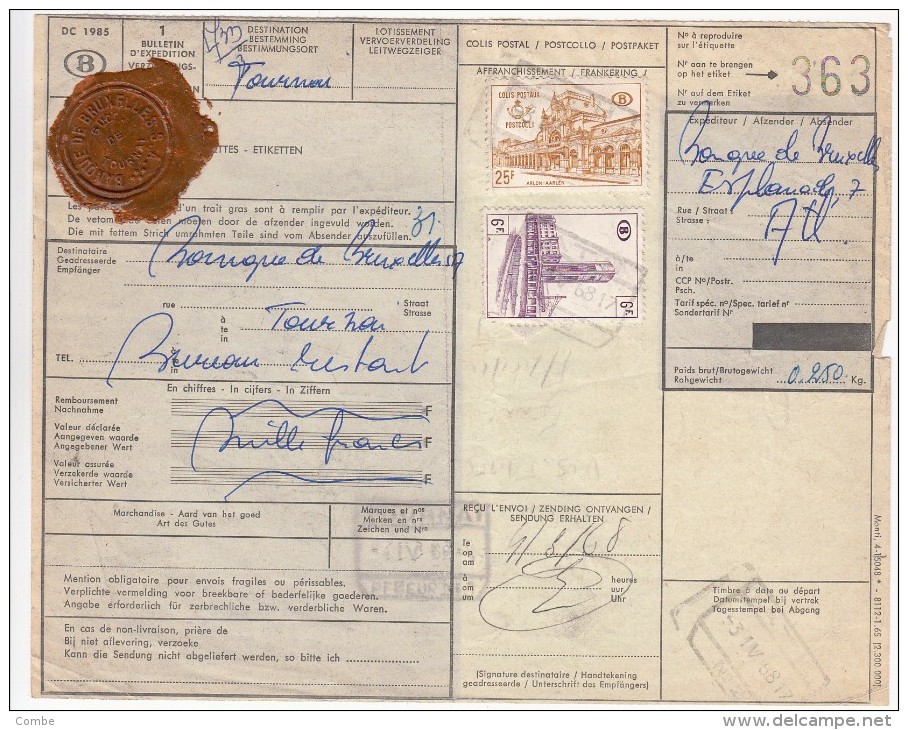 DC 1985
B
1
BULLETIN
D'EXPEDITION
DESTINATION
BESTEMMING
BESTIMMUNGSORT
Tournai
LOTISSEMENT
VERVOERVERDELING
LEITWEGZEIGER
COLIS POSTAL / POSTCOLLO / POSTPAKET
AFFRANCHISSEMENT / FRANKERING /
COLIS POSTAUX
POSTCOLLI
B
25F
ARLON-AARLEN
6F
B
6F
68 17
No à reproduire
sur l'étiquette
No aan te brengen
op het etiket
No auf dem Etiket
zu vermerken
363
BANQUE DE BRUXELLES S.A.
TOURNAI
ETTES - ETIKETTEN
d'un trait gras sont à remplir par l'expéditeur.
De vetomde delen moeten door de afzender ingevuld worden.
Die mit fettem Strich umrahmten Teile sind vom Absender auszufüllen.
31.
Expéditeur / Afzender / Absender
Banque de Bruxelles
Esplanade, 7
Rue / Straat
Strasse :
Ath
à/te
in
CCP No/Postr.
Psch.
Tarif spéc. no/Spec. tarief nr
Sondertarif Nr
Poids brut/Brutogewicht
Rohgewicht
0.250 Kg.
Destinataire
Geadresseerde
Empfänger
Banque de Bruxelles
rue
Straat
Strasse
à
te
in
Tournai
TEL.
Bureau restant
En chiffres - In cijfers - In Ziffern
Remboursement
Nachnahme
F
Valeur déclarée
Aangegeven waarde
Angegebener Wert
mille francs
F
Valeur assurée
Verzekerde waarde
Versicherter Wert
F
Marchandise - Aard van het goed
Art des Gutes
Marques et nos
Merken en nrs
Zeichen und Nrn
REÇU L'ENVOI / ZENDING ONTVANGEN /
SENDUNG ERHALTEN
le
op
am
à
om
um
heures
uur
Uhr
(Signature destinataire / Handtekening
geadresseerde / Unterschrift des Empfängers)
Timbre à date au départ
Datumstempel bij vertrek
Tagesstempel bei Abgang
-3 IV 68 17
Mention obligatoire pour envois fragiles ou périssables.
Verplichte vermelding voor breekbare of bederfelijke goederen.
Angabe erforderlich für zerbrechliche bzw. verderbliche Waren.
En cas de non-livraison, prière de
Bij niet aflevering, verzoeke
Kann die Sendung nicht abgeliefert werden, so bitte ich
Monti, 4-15048 * - 8112-1.65 (2.300.000)
Combe
www.delcampe.net